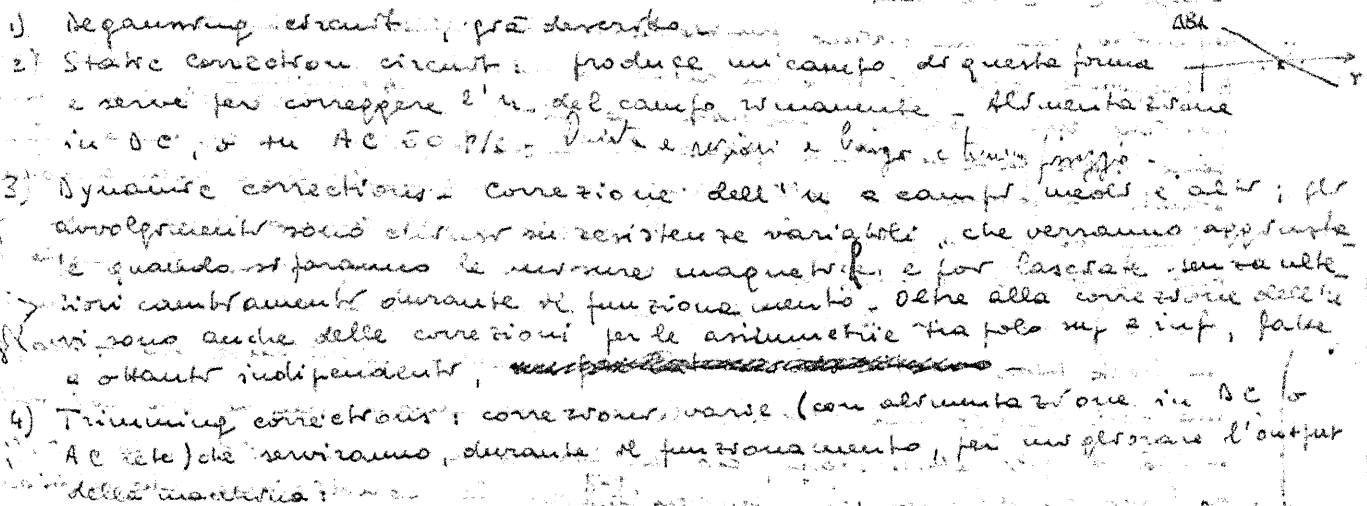 1) Degaussing circuit, già descritto
ΔB/B
2) Static correction circuit: produce un campo di questa forma
r
e serve per correggere l'n del campo rimanente - Alimentazione
in DC, o in AC 50 P/s - e
3) Dynamic corrections - correzione dell'n a campi medi e alti; gli
avvolgimenti sono chiusi su resistenze variabili, che verranno aggiusta
te quando si faranno le misure magnetiche e poi lasciate senza ulte
riori cambiamenti durante il funzionamento - Oltre alla correzione dell'n
vi sono anche delle correzioni per le asimmetrie tra polo sup e inf, fatte
a ottanti indipendenti,
4) Trimming corrections: correzioni varie (con alimentazione in DC o
AC rete) che serviranno, durante il funzionamento, per migliorare l'output
della macchina: